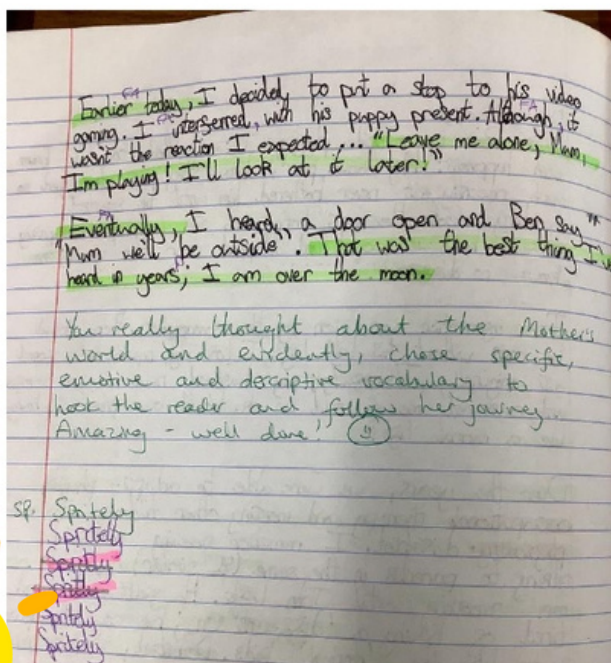 FA FA
Earlier today, I decided, to put a stop to his video
gaming. I interserred, with his puppy present. Although, it
wasn't the reaction I expected... "Leave me alone, Mum,
I'm playing! I'll look at it later!"
FA
"Eventually, I heard, a door open and Ben say"
"Mum we'll be outside". That was the best thing I've
heard in years; I am over the moon.
You really thought about the Mother's
world and evidently, chose specific,
emotive and descriptive vocabulary to
hook the reader and follow her journey.
Amazing - well done!
sp. Spritely
Spritely
Spritely
Spritely